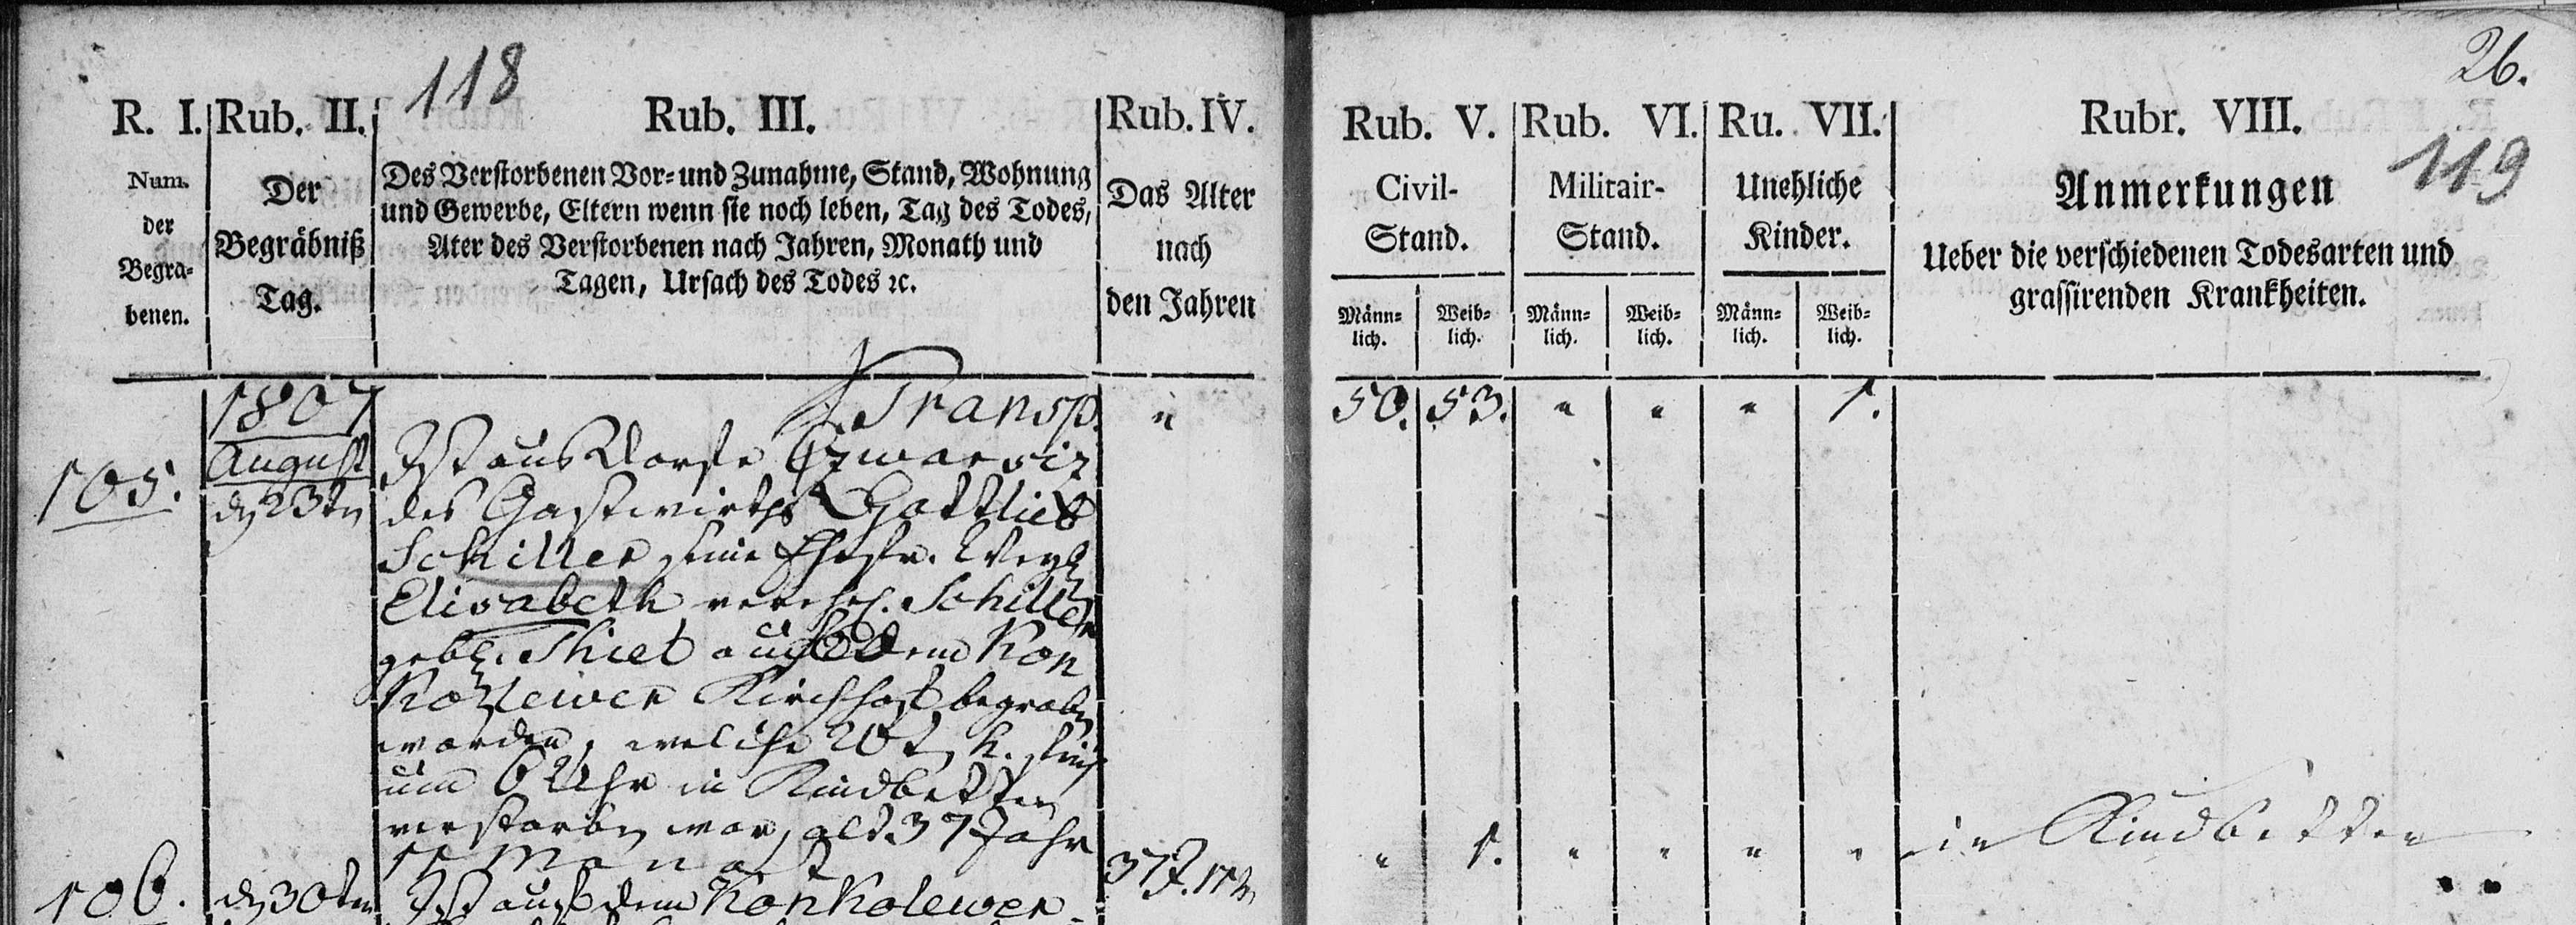 118
R. I.
Num.
der
Begra-
benen.
Rub. II.
Der
Begräbniß
Tag.
Rub. III.
Des Verstorbenen Vor- und Zunahme, Stand, Wohnung
und Gewerbe, Eltern wenn sie noch leben, Tag des Todes,
Ater des Verstorbenen nach Jahren, Monath und
Tagen, Ursach des Todes ꝛc.
Rub. IV.
Das Alter
nach
den Jahren
26.
119
Rub. V.
Civil-
Stand.
Männ-
lich.
Weib-
lich.
Rub. VI.
Militair-
Stand.
Männ-
lich.
Weib-
lich.
Ru. VII.
Unehliche
Kinder.
Männ-
lich.
Weib-
lich.
Rubr. VIII.
Anmerkungen
Ueber die verschiedenen Todesarten und
grassirenden Krankheiten.
1807 Transp. " 50. 53. " " " 1.
August Ist aus Dorfe
105. 23tn des Gastwirths Gottlieb
Schiller seine Ehefr.
Elisabeth verehl. Schiller
gebh. Thiel auf dem Kon
Kolewer Kirchhof begraben
worden, welche 20t h.
um 6 Uhr in Kindbetten
verstorben war, alt. 37 Jahr
11 Monat 37 J. 11 M " 1. " " " " in Kindbetten
106. 30ten Ist auf dem KonKolewer